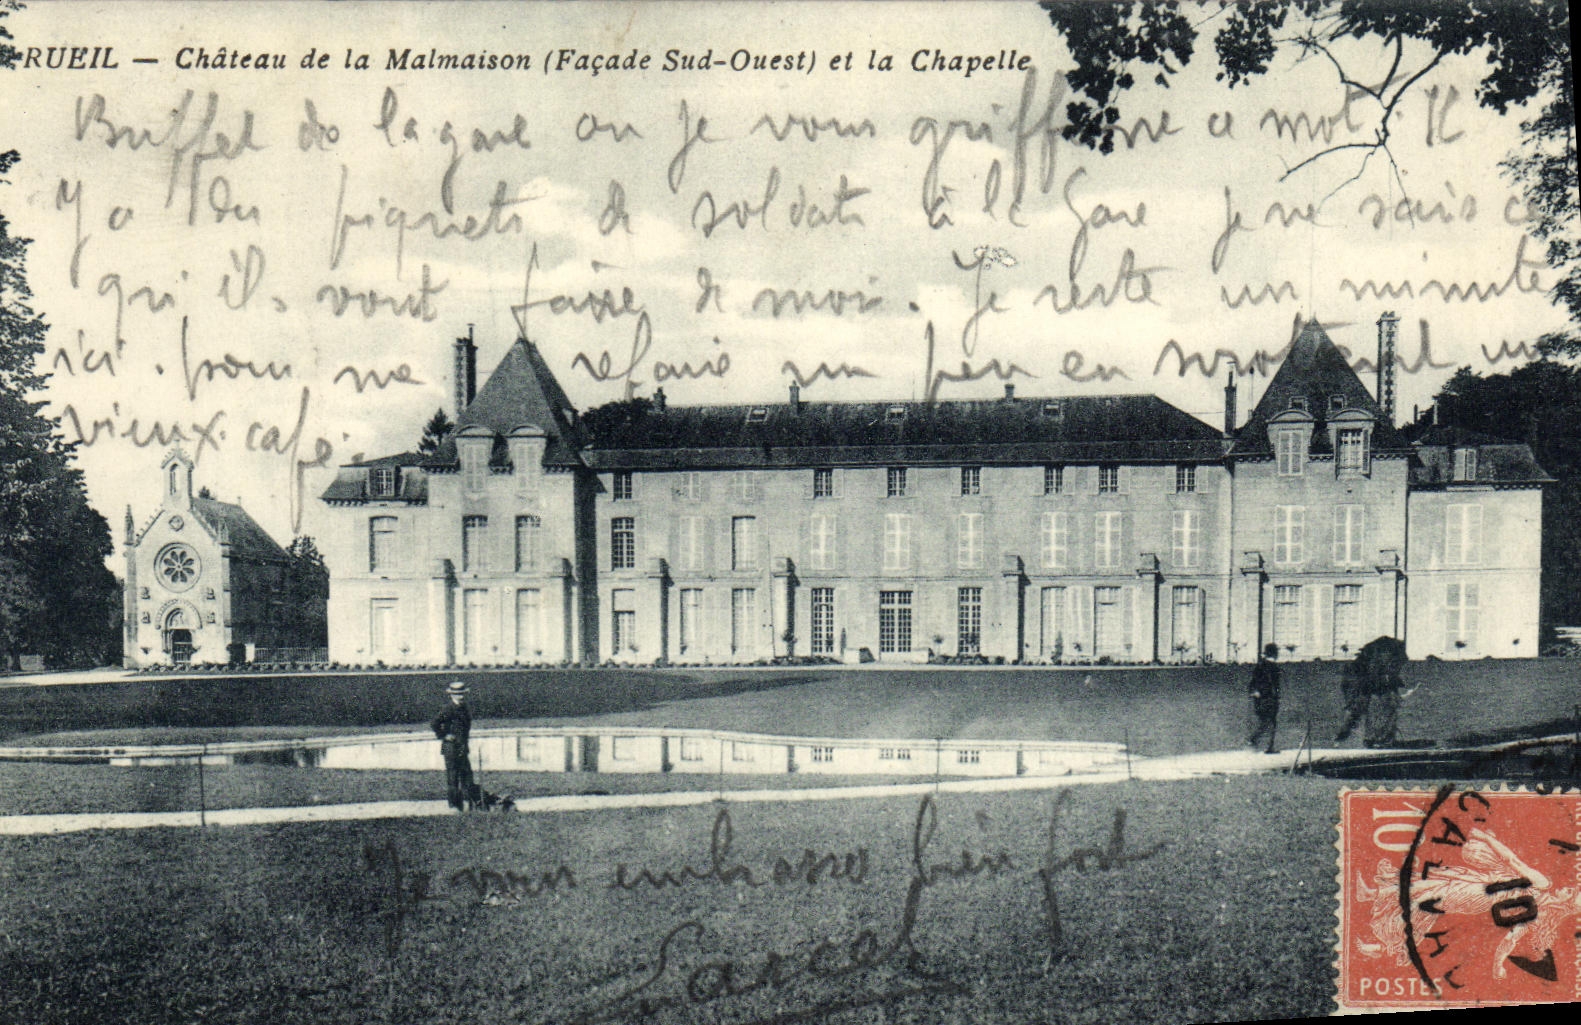 RUEIL — Château de la Malmaison (Façade Sud-Ouest) et la Chapelle
Buffet de la gare ou je vous griffonne ce mot. Il
y a des piquets de soldats à la Gare je ne sais ce
qu'ils vont faire de moi. Je reste un minute
ici. pour me refaire un peu en sirotant un
vieux café.
Je vous embrasse bien fort
10
POSTES
CALV
10
7